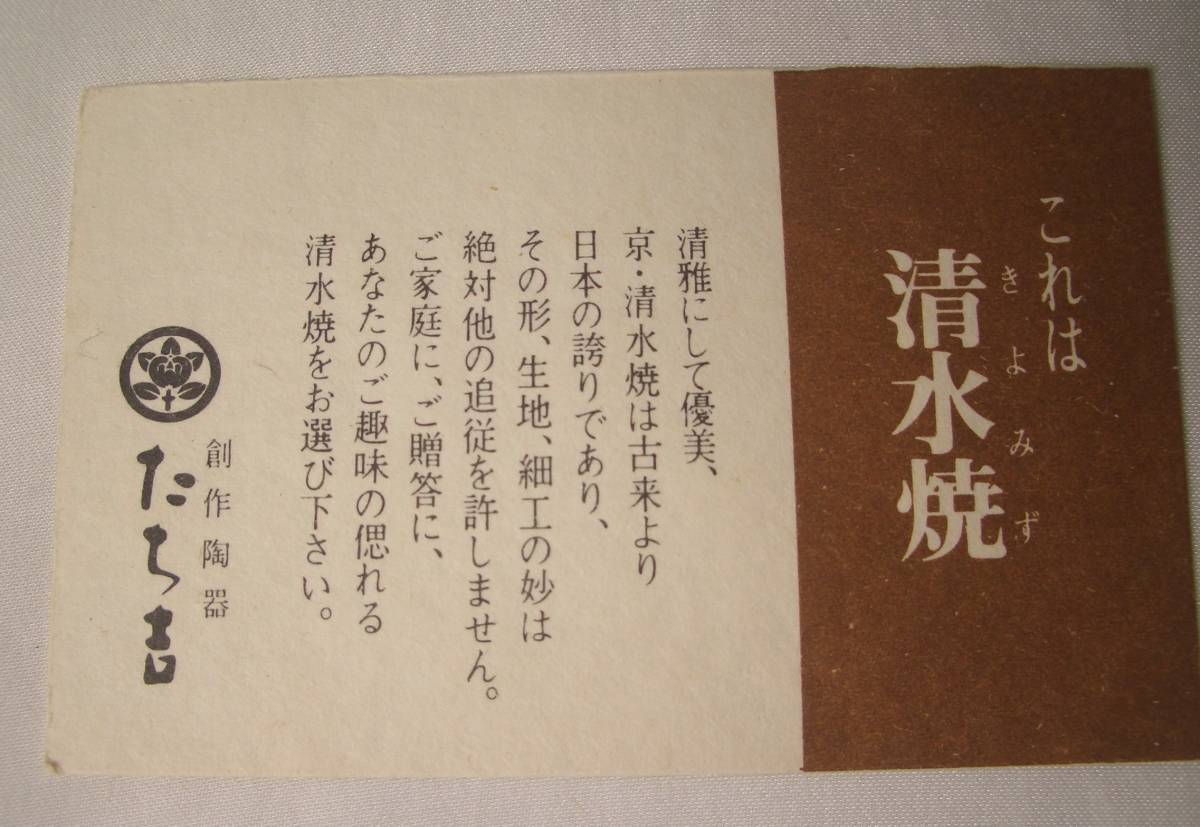 これは
清水焼
きよみず
清雅にして優美、
京・清水焼は古来より
日本の誇りであり、
その形、生地、細工の妙は
絶対他の追従を許しません。
ご家庭に、ご贈答に、
あなたのご趣味の偲れる
清水焼をお選び下さい。
創作陶器
たち吉